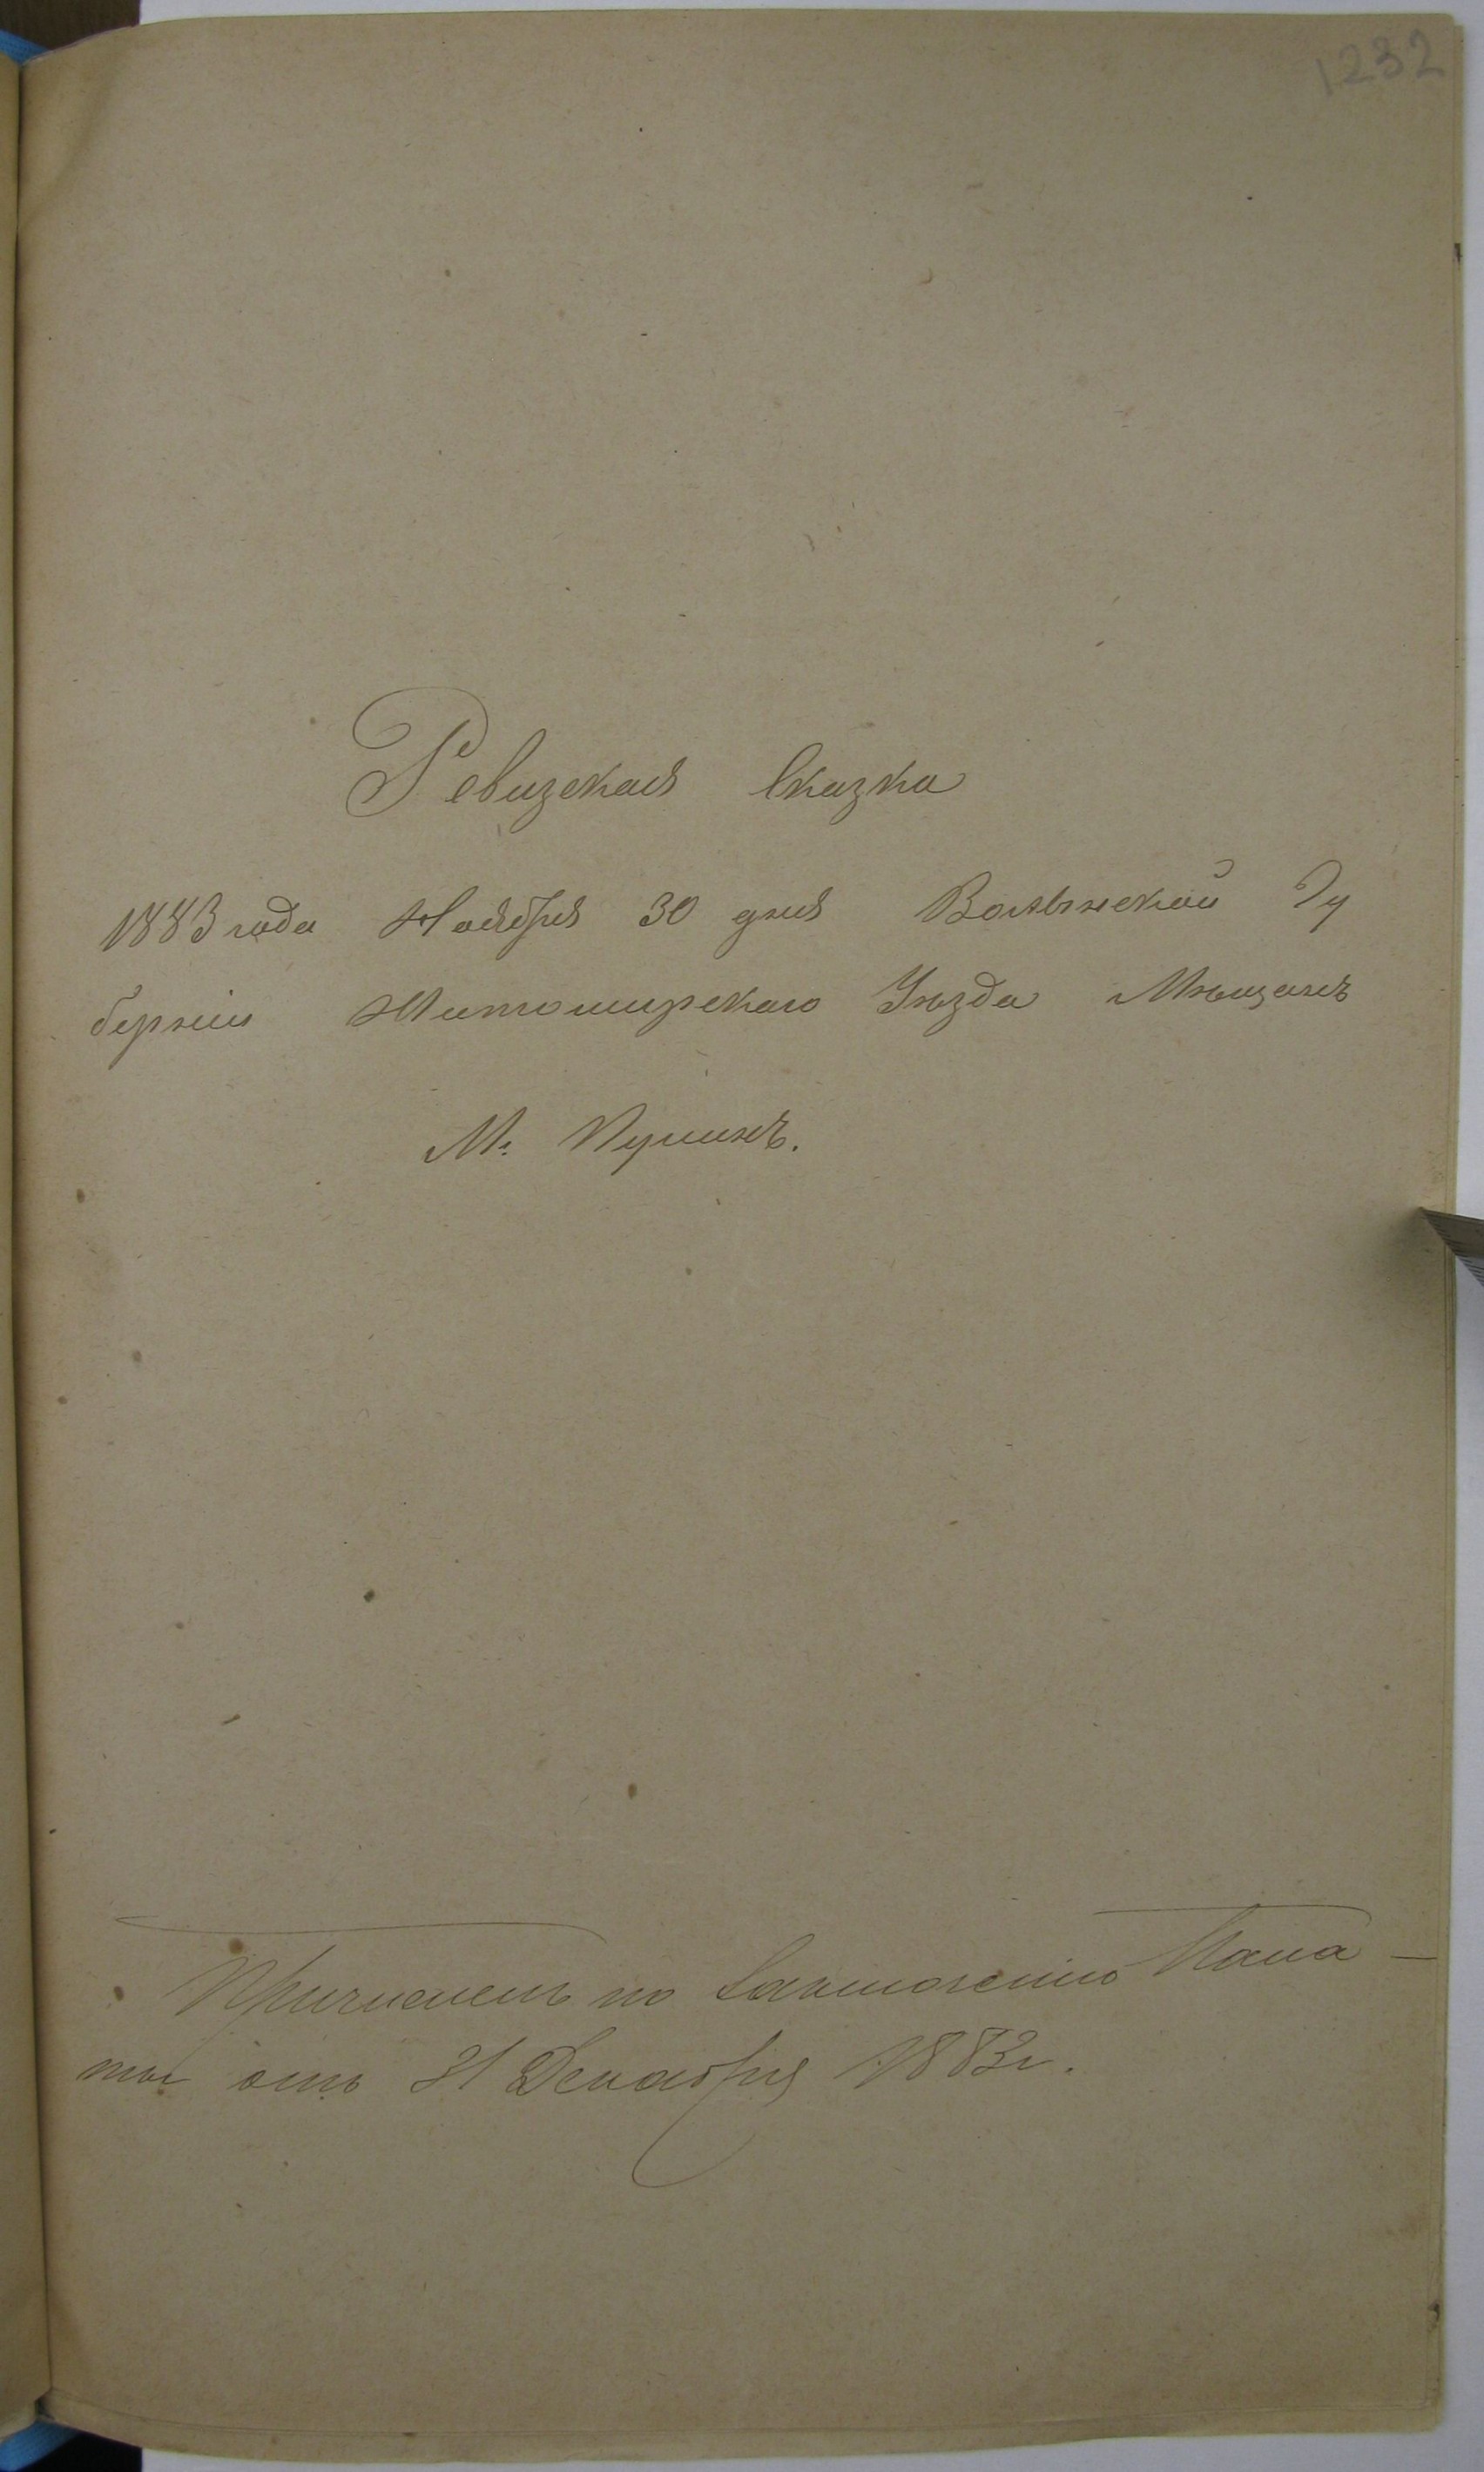 1232
Ревизская Сказка
1883 года Ноября 30 дня Волынской Гу
берніи Житомирскаго Уѣзда Мѣщанъ
М. Пулинъ.
Причислены по заключенію Пала-
ты отъ 31 Декабря 1883 г.